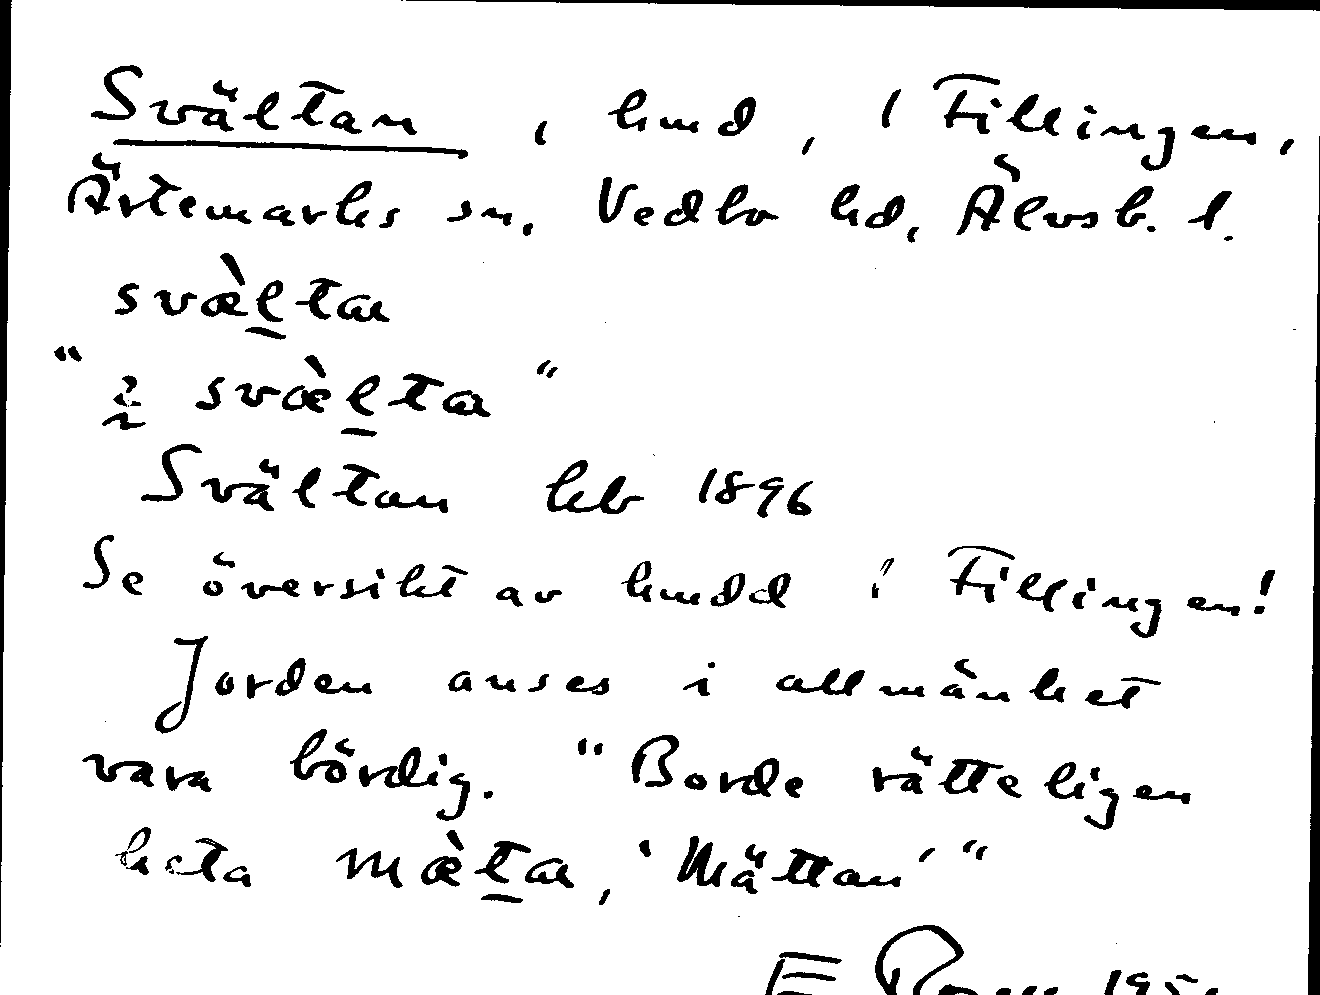 Svältan, hmd, i Fillingen,
Ärtemarks sn, Vedbo hd, Älvsb. l.
svæ̀l̠ta
"i̠ svæ̀l̠ta"
Svältan hkb 1896
Se översikt av hmdd i Fillingen!
Jorden anses i allmänhet
vara bördig. "Borde rätteligen
heta mæ̀t̠a, 'Mättan'"
E